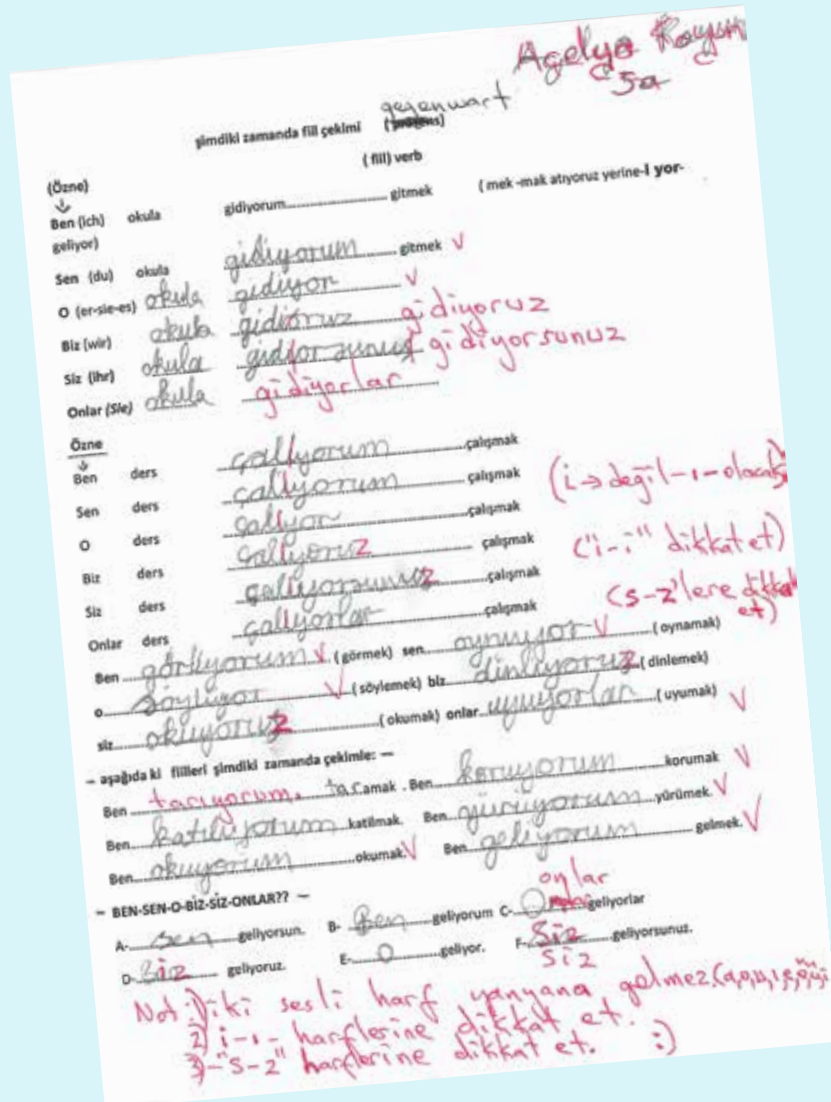 Açelya
5a
gegenwart
şimdiki zamanda fiil çekimi
( fiil) verb
(Özne)
Ben (ich) okula gidiyorum gitmek ( mek -mak atıyoruz yerine-I yor-
geliyor)
Sen (du) okula gidiyorum gitmek
O (er-sie-es) okula gidiyor
Biz (wir) okula gidioruz gidiyoruz
Siz (ihr) okula gidiyorsunuz
Onlar (Sie) okula gidiyorlar
Özne
Ben ders çalIyorum çalışmak
Sen ders çalIyorum çalışmak
O ders çalIyor çalışmak (i→ değil -ı- olacak
Biz ders çalIyoruz çalışmak
Siz ders çalIyorsunuz çalışmak ("i-ı" dikkat et)
Onlar ders çalIyorlar çalışmak (s-z'lere dikkat et)
Ben görüyorum ( görmek) sen oynuyor ( oynamak)
o söylüyor ( söylemek) biz dinliyoruz ( dinlemek)
siz okuyoruz ( okumak) onlar uyuyorlar ( uyumak)
– aşağıda ki fiilleri şimdiki zamanda çekimle: –
Ben tarıyorum. taramak . Ben koruyorum korumak
Ben katılıyorum katilmak. Ben yürüyorum yürümek.
Ben okuyorum okumak. Ben geliyorum gelmek.
– BEN-SEN-O-BİZ-SİZ-ONLAR?? –
onlar
A- sen geliyorsun. B- Ben geliyorum C- geliyorlar
D- Biz geliyoruz. E- O geliyor. F- Siz geliyorsunuz.
siz
Not: 1) iki sesli harf yanyana gelmez.
2) i-ı- harflerine dikkat et.
3)-"s-z" harflerine dikkat et. :)